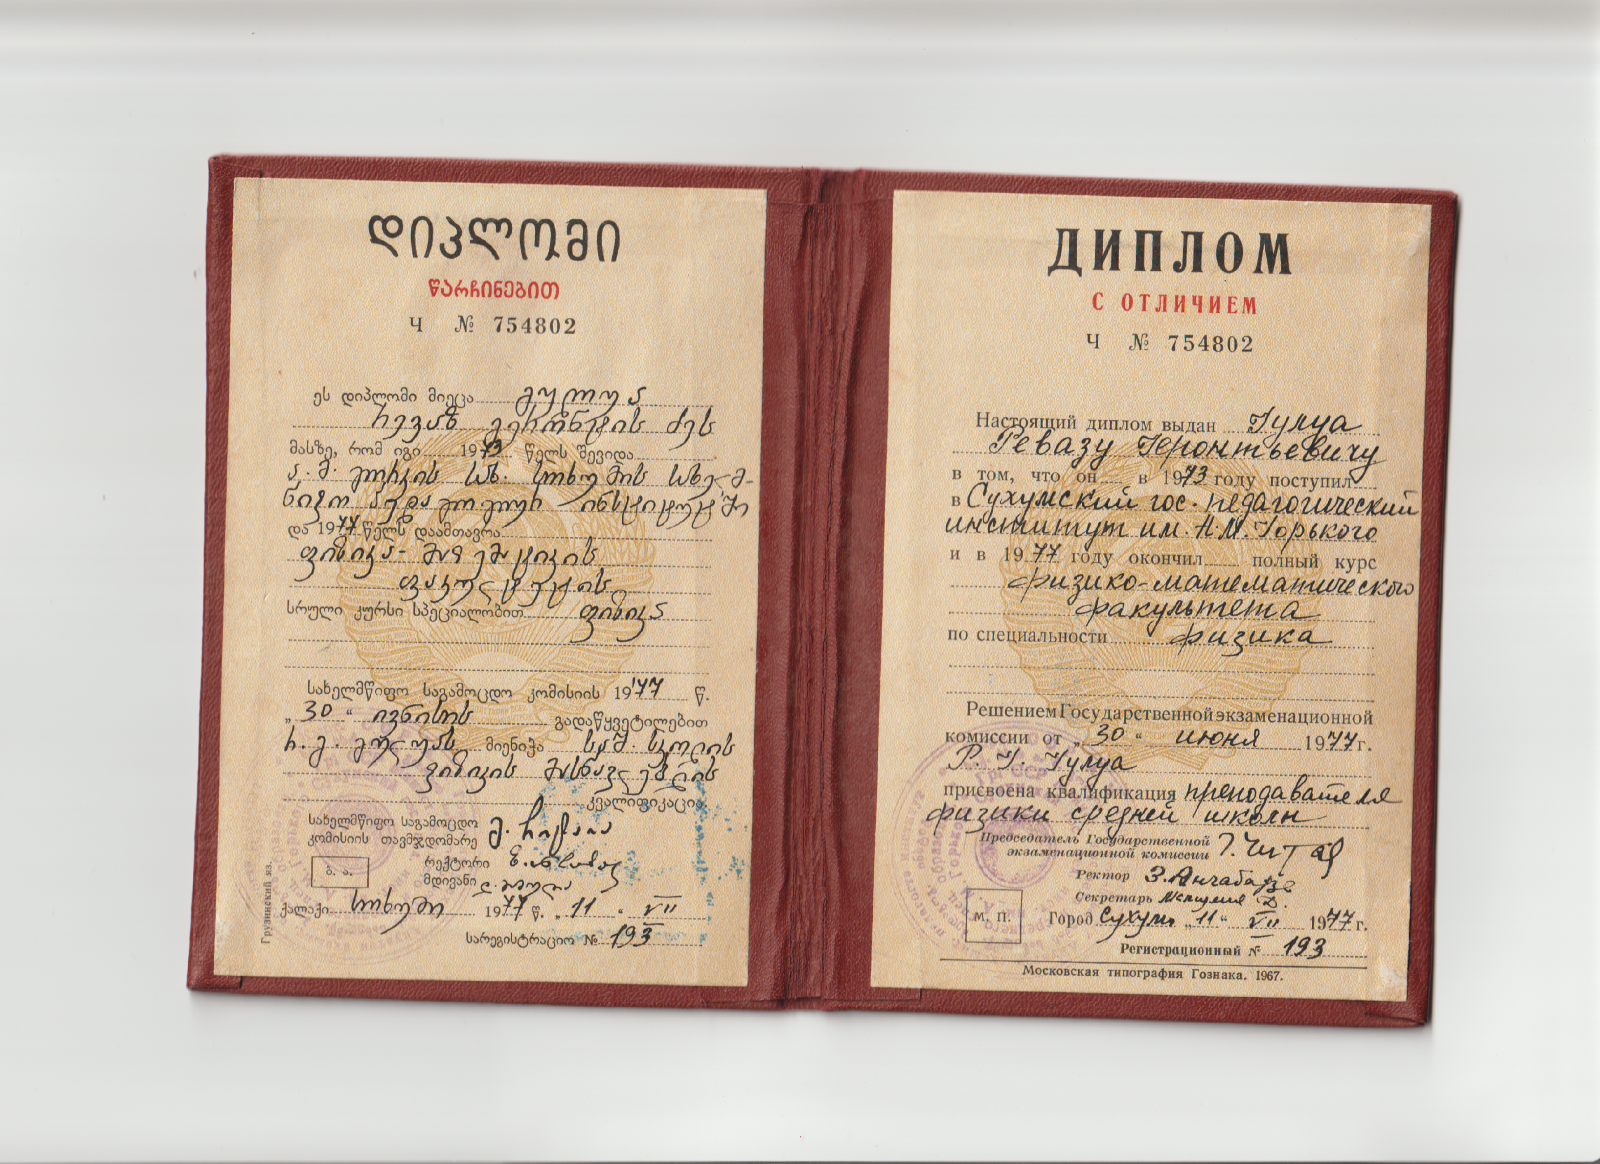 დიპლომი
წარჩინებით
Ч № 754802
ეს დიპლომი მიეცა გულუა
რევაზ გერონტის ძეს
მასზე, რომ იგი 1973 წელს შევიდა
ა. მ. გორკის სახ. სოხუმის სახელმ-
წიფო პედაგოგიურ ინსტიტუტში
და 1977 წელს დაამთავრა
ფიზიკა-მათემატიკის
ფაკულტეტის
სრული კურსი სპეციალობით ფიზიკა
სახელმწიფო საგამოცდო კომისიის 1977 წ.
„30“ ივნისის გადაწყვეტილებით
რ. გ. გულუას მიენიჭა საშ. სკოლის
ფიზიკის მასწავლებლის
კვალიფიკაცია
სახელმწიფო საგამოცდო
კომისიის თავმჯდომარე
რექტორი
მდივანი
ბ. ა.
ქალაქი სოხუმი 1977 წ. „11“ VII
სარეგისტრაციო № 193
Грузинский яз.
ДИПЛОМ
С ОТЛИЧИЕМ
Ч № 754802
Настоящий диплом выдан Гулуа
Ревазу Геронтьевичу
в том, что он в 1973 году поступил
в Сухумский гос. педагогический
институт им. А.М. Горького
и в 1977 году окончил полный курс
физико-математического
факультета
по специальности физика
Решением Государственной экзаменационной
комиссии от „30“ июня 1977 г.
Р. Г. Гулуа
присвоена квалификация преподавателя
физики средней школы
Председатель Государственной
экзаменационной комиссии
Ректор З. Анчабадзе
Секретарь
М. П.
Город Сухуми „11“ VII 1977 г.
Регистрационный № 193
Московская типография Гознака. 1967.